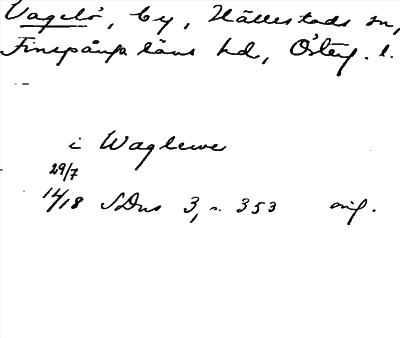 Vagelö, by, Hällestads sn,
Finspånga läns hd, Österg. l.
i Waglewe
29/7
1418 SDns 3, s. 353 orig.